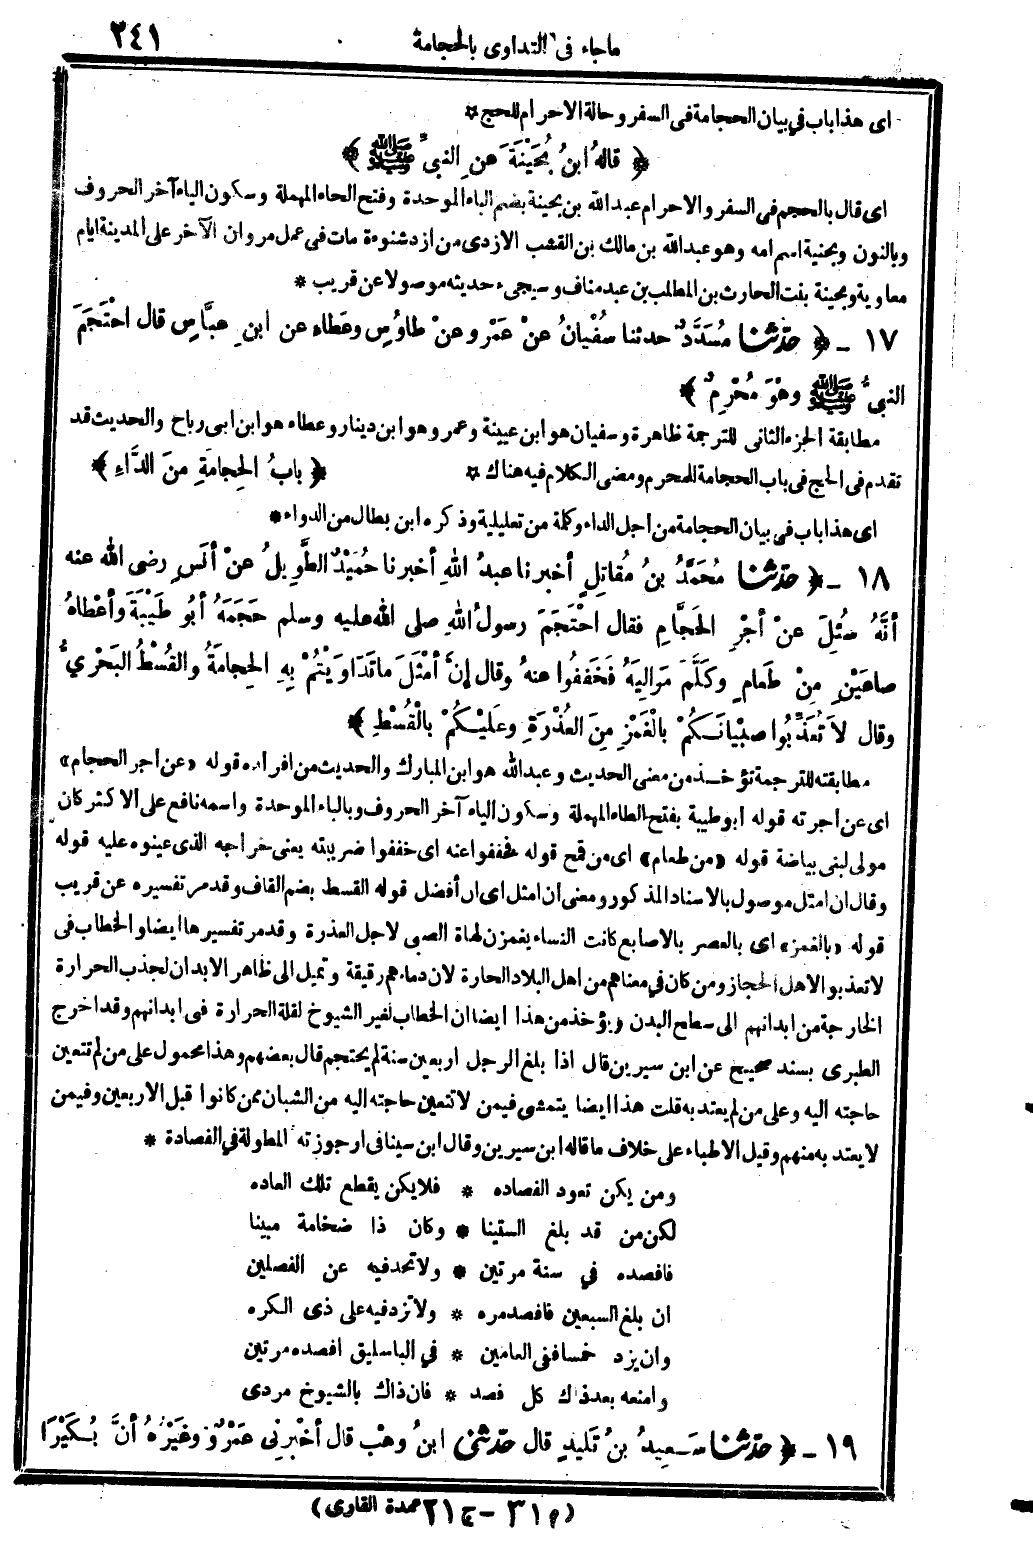 ماجاء فى التداوى بالحجامة ٢٤١
اى هذا باب في بيان الحجامة فى السفر وحالة الاحرام للحج *
﴿ قالهُ ابنُ بُحَيْنَةَ عنِ النبيِّ ﷺ ﴾
اى قال بالحجم فى السفر والاحرام عبد الله بن بحينة بضم الباء الموحدة وفتح الحاء المهملة وسكون الياء آخر الحروف
وبالنون وبحنية اسم امه وهو عبد الله بن مالك بن القشب الازدى من ازد شنوءة مات فى عمل مروان الآخر على المدينة ايام
معاوية وبحينة بنت الحارث بن المطلب بن عبد مناف وسيجىء حديثه موصولا عن قريب *
١٧ ـ ﴿ حدّثنا مُسَدَّدٌ حدثنا سُفْيانُ عنْ عَمْرٍ وعنْ طاوُسٍ وعَطاءٍ عن ابنِ عبَّاسٍ قال احْتَجَمَ
النبيُّ ﷺ وهْوَ مُحْرِمٌ ﴾
مطابقة الجزء الثانى للترجمة ظاهرة وسفيان هو ابن عيينة وعمرو هو ابن دينار وعطاء هو ابن ابى رباح والحديث قد
تقدم فى الحج فى باب الحجامة للمحرم ومضى الكلام فيه هناك * ﴿ بابُ الحِجامَةِ مِنَ الدَّاءِ ﴾
اى هذا باب فى بيان الحجامة من اجل الداء وكلمة من تعليلية وذكره ابن بطال من الدواء *
١٨ ـ ﴿ حدّثنا مُحَمَّدُ بنُ مُقاتِلٍ أخبرنا عبدُ اللهِ أخبرنا حُمَيْدٌ الطَّوِيلُ عنْ أنَسٍ رضى الله عنه
أنَّهُ سُئِلَ عنْ أجْرِ الحَجَّامِ فقال احْتَجَمَ رسولُ اللهِ صلى الله عليه وسلم حَجَمَهُ أبُو طَيْبَةَ وأعْطاهُ
صاعَيْنِ مِنْ طَعامٍ وكَلَّمَ مَوالِيَهُ فَخَففُوا عنهُ وقال إنَّ أمْثَلَ ماتَدَاوَيْتُمْ بِهِ الحِجامَةُ والقُسْطُ البَحْرِيُّ
وقال لاَ تُعَذِّبُوا صِبْيانَكُمْ بالْغَمْزِ مِنَ العُذْرَةِ وعَلَيْكُمْ بالْقُسْطِ ﴾
مطابقته للترجمة تؤخذ من معنى الحديث وعبد الله هو ابن المبارك والحديث من افراده قوله «عن اجر الحجام»
اى عن اجرته قوله ابوطيبة بفتح الطاء المهملة وسكون الياء آخر الحروف وبالباء الموحدة واسمه نافع على الاكثر كان
مولى لبنى بياضة قوله «من طعام» اى من قمح قوله فخففوا عنه اى خففوا ضريبته يعنى خراجه الذى عينوه عليه قوله
وقال ان امثل موصول بالاسناد المذكور ومعنى ان امثل اى ان أفضل قوله القسط بضم القاف وقد مر تفسيره عن قريب
قوله «بالغمز» اى بالعصر بالاصابع كانت النساء يغمزن لهاة الصبى لاجل العذرة وقد مر تفسيرها ايضا والخطاب فى
لا تعذبوا لاهل الحجاز ومن كان في معناهم من اهل البلاد الحارة لان دماءهم رقيقة وتميل الى ظاهر الابدان لجذب الحرارة
الخارجة من ابدانهم الى سطح البدن ويؤخذ من هذا ايضا ان الخطاب لغير الشيوخ لقلة الحرارة فى ابدانهم وقد اخرج
الطبرى بسند صحيح عن ابن سيرين قال اذا بلغ الرجل اربعين سنة لم يحتجم قال بعضهم وهذا محمول على من لم تتعين
حاجته اليه وعلى من لم يعتد به قلت هذا ايضا يتمشى فيمن لا تتعين حاجته اليه من الشبان ممن كانوا قبل الاربعين وفيمن
لا يعتد به منهم وقيل الاطباء على خلاف ما قاله ابن سيرين وقال ابن سينا فى ارجوزته المطولة في الفصادة *
ومن يكن تعود الفصاده * فلا يكن يقطع تلك العاده
لكن من قد بلغ الستينا * وكان ذا ضخامة مبينا
فافصده في سنة مرتين * ولا تحد فيه عن الفصلين
ان بلغ السبعين فافصد مره * ولا تزد فيه على ذى الكره
وان يزد خمسا ففى العامين * في الباسليق افصده مرتين
وامنعه بعد ذاك كل فصد * فان ذاك بالشيوخ مردى
١٩ ـ ﴿ حدّثنا سَعِيدُ بنُ تَلِيدٍ قال حدّثنى ابنُ وهْبٍ قال أخْبرنِى عَمْرٌو وغيْرُهُ أنَّ بُكَيْرًا
(م ٣١ ـ ج ٢١ عمدة القاوى)